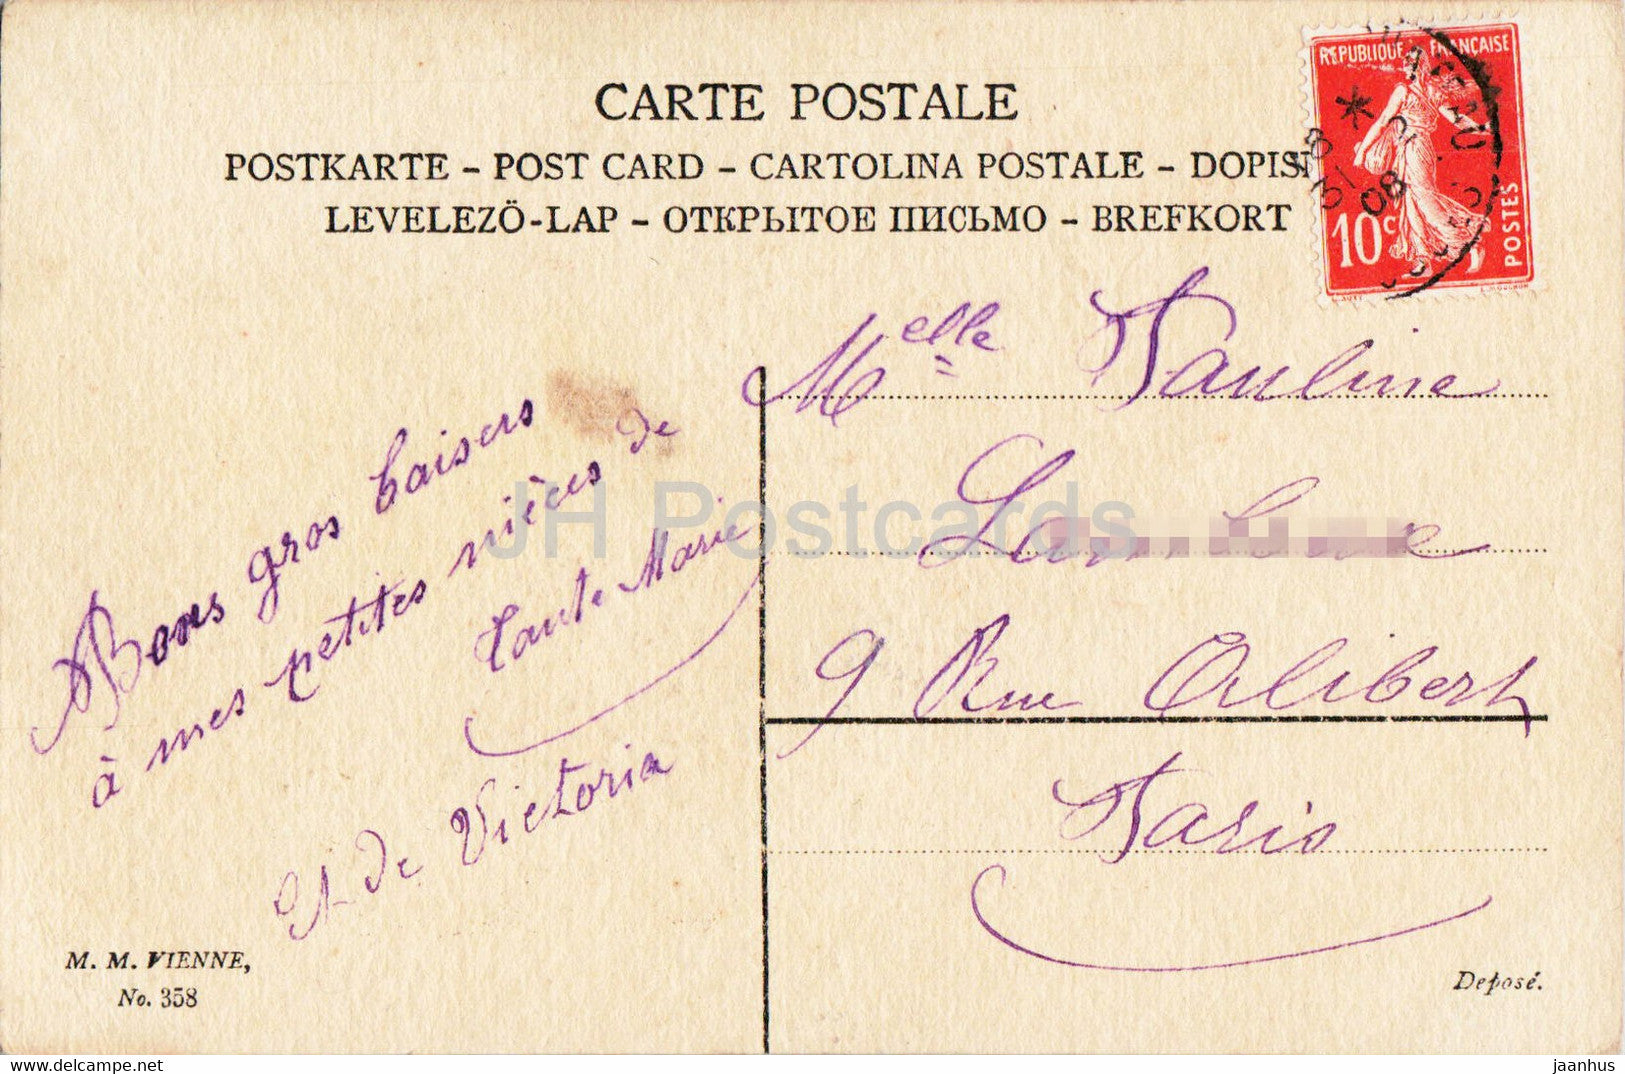 CARTE POSTALE
POSTKARTE - POST CARD - CARTOLINA POSTALE - DOPIS
LEVELEZÖ-LAP - ОТКРЫТОЕ ПИСЬМО - BREFKORT
REPUBLIQUE FRANÇAISE
10c
POSTES
8
31 2
08
Melle Pauline
9 Rue Alibert
Paris
Bons gros baisers
à mes petites nièces de
Tante Marie
Et de Victoria
M. M. VIENNE,
No. 358
Deposé.
JH Postcards
https://www.delcampe.net
jaanhus